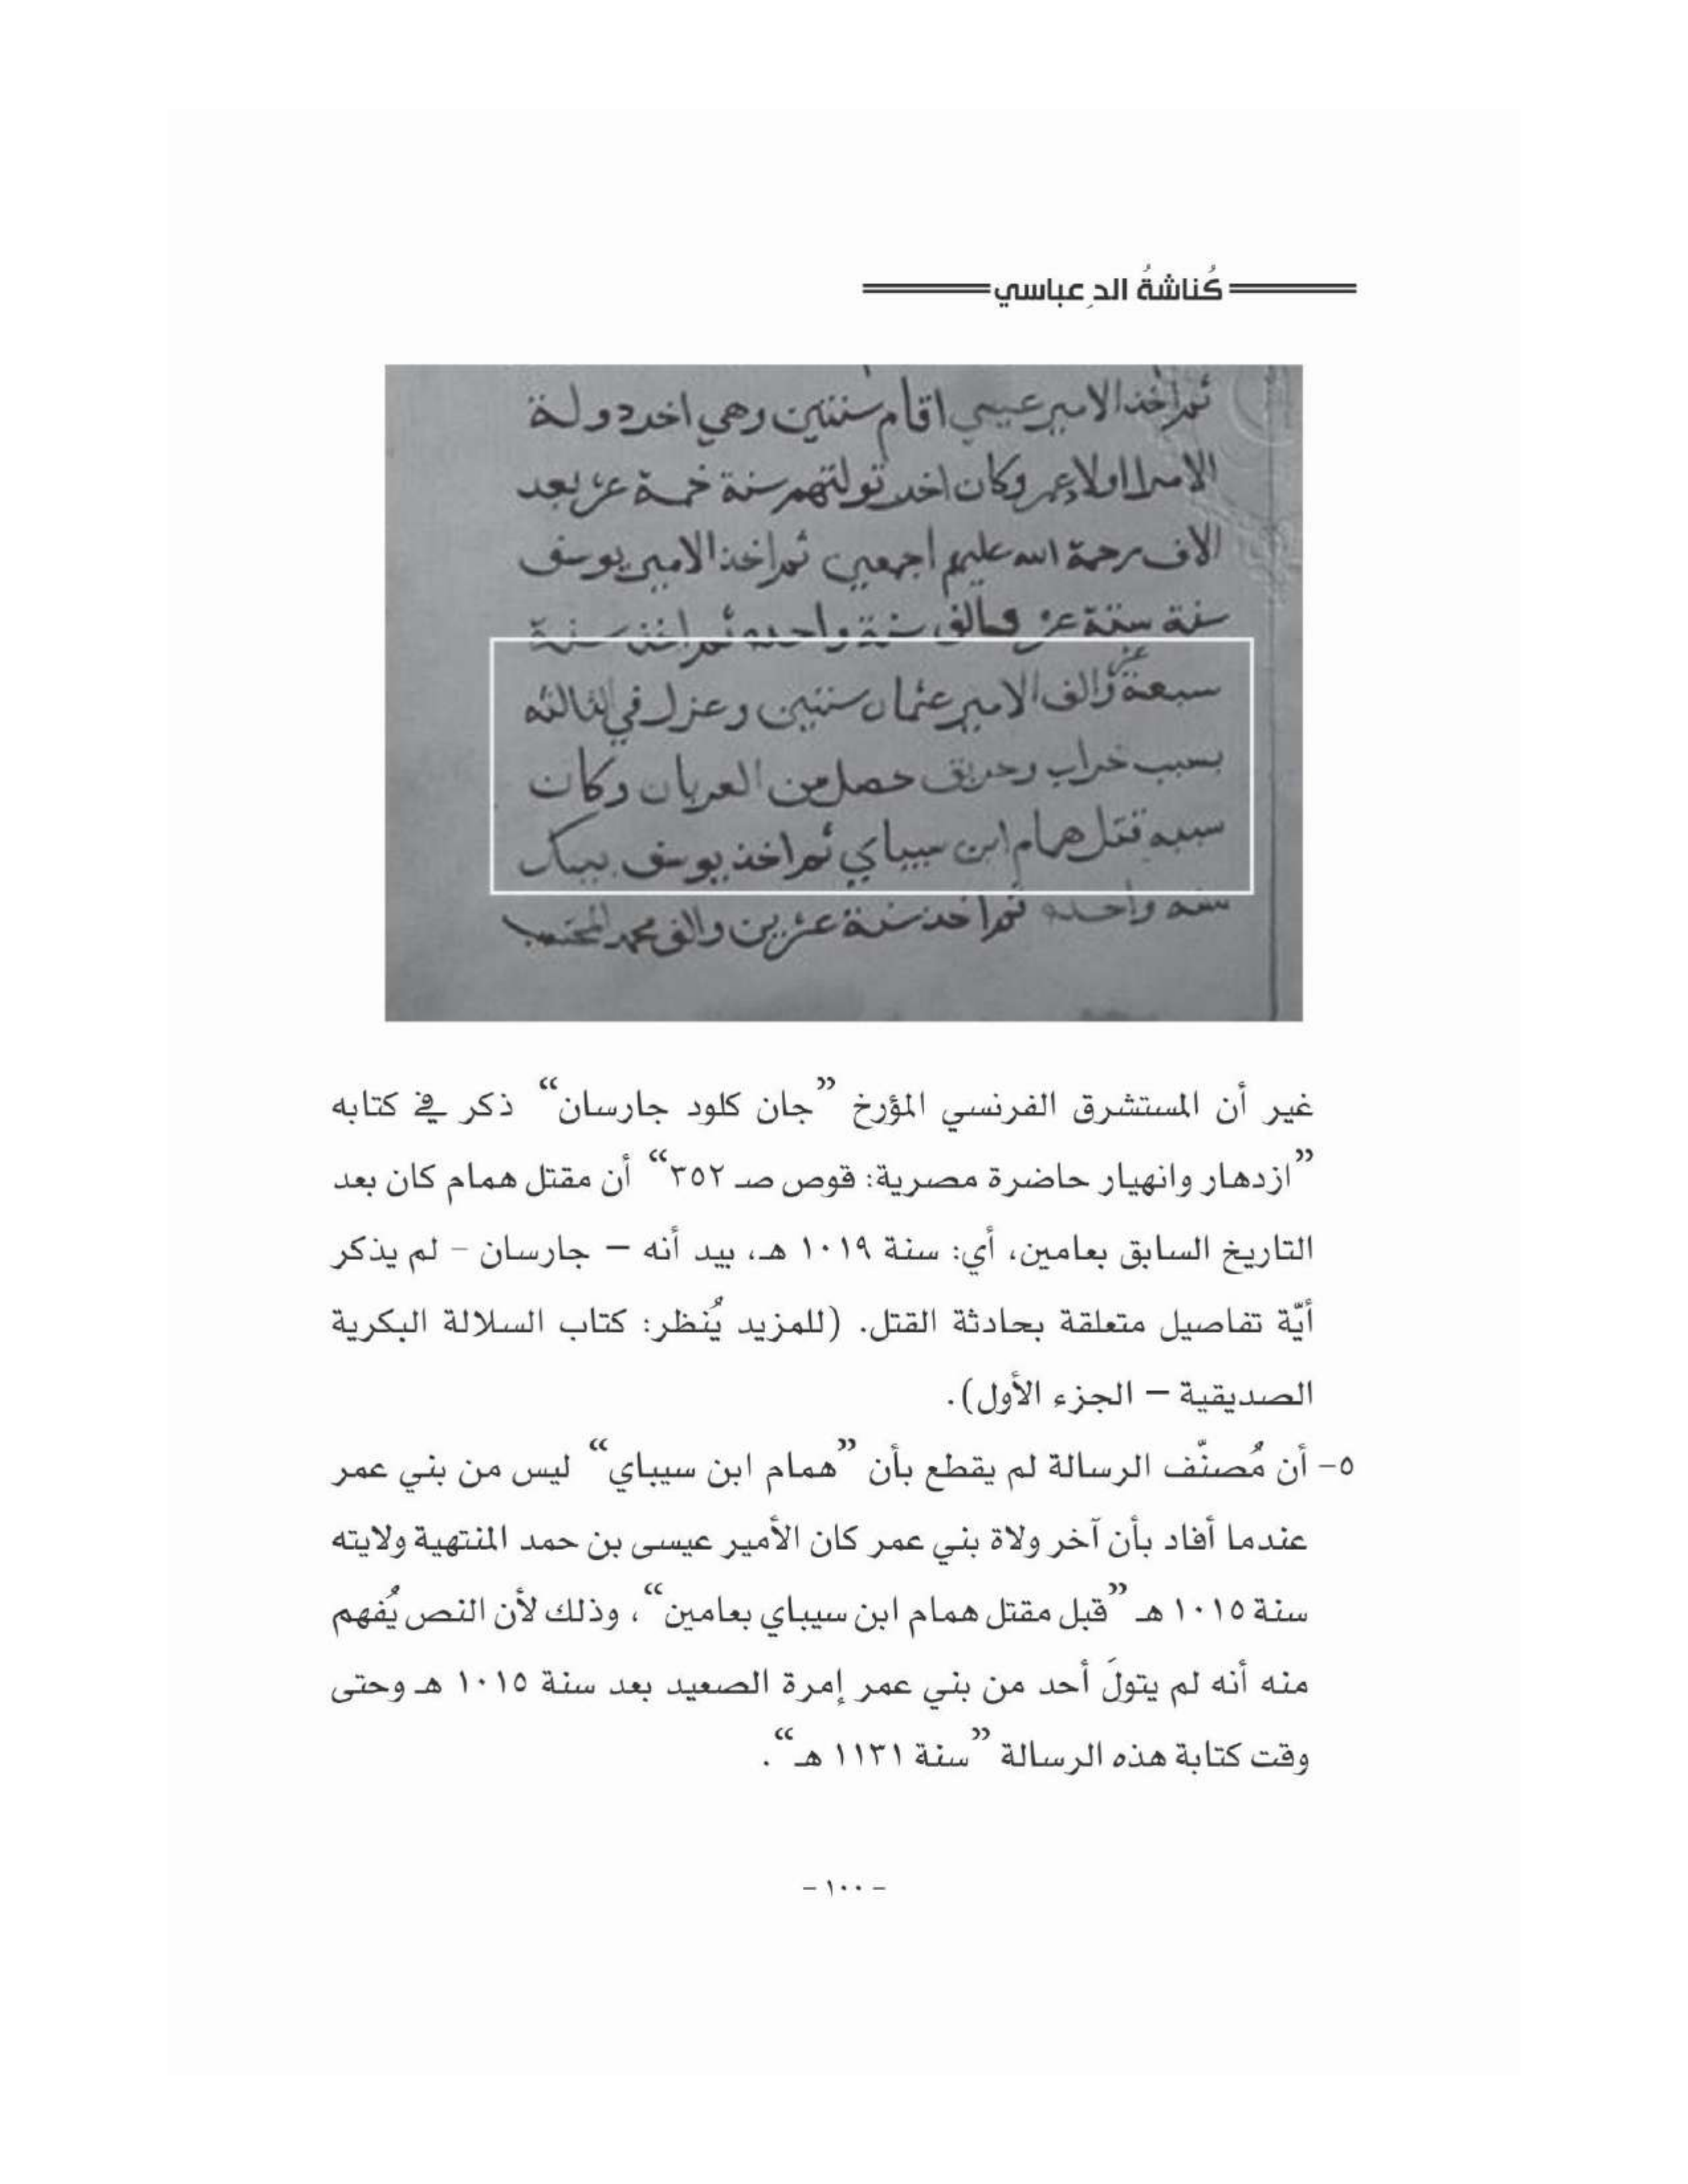 كُناشةُ الدِعباسي
ثم اخذ الامير عيسي اقام سنتين وهي اخر دولة
الامرا اولاد عمر وكان اخر تولتهم سنة خمسة عشر بعد
الالف رحمة الله عليهم اجمعين ثم اخذ الامير يوسف
سنة ستة عشر والف سنة واحده ثم اخذ سنة
سبعة عشر والف الامير عثمان سنتين وعزل في الثالثه
بسبب خراب وحريق حصل من العربان وكان
سببه قتل همام ابن سيباي ثم اخذ يوسف بيك
سنه واحده ثم اخذ سنة عشرين والف محمد
غير أن المستشرق الفرنسي المؤرخ ”جان كلود جارسان“ ذكر في كتابه
”ازدهار وانهيار حاضرة مصرية: قوص صـ ٣٥٢“ أن مقتل همام كان بعد
التاريخ السابق بعامين، أي: سنة ١٠١٩ هـ، بيد أنه – جارسان - لم يذكر
أيّة تفاصيل متعلقة بحادثة القتل. (للمزيد يُنظر: كتاب السلالة البكرية
الصديقية – الجزء الأول).
٥- أن مُصنّف الرسالة لم يقطع بأن ”همام ابن سيباي“ ليس من بني عمر
عندما أفاد بأن آخر ولاة بني عمر كان الأمير عيسى بن حمد المنتهية ولايته
سنة ١٠١٥ هـ ”قبل مقتل همام ابن سيباي بعامين“، وذلك لأن النص يُفهم
منه أنه لم يتولَ أحد من بني عمر إمرة الصعيد بعد سنة ١٠١٥ هـ وحتى
وقت كتابة هذه الرسالة ”سنة ١١٣١ هـ“.
- ١٠٠ -